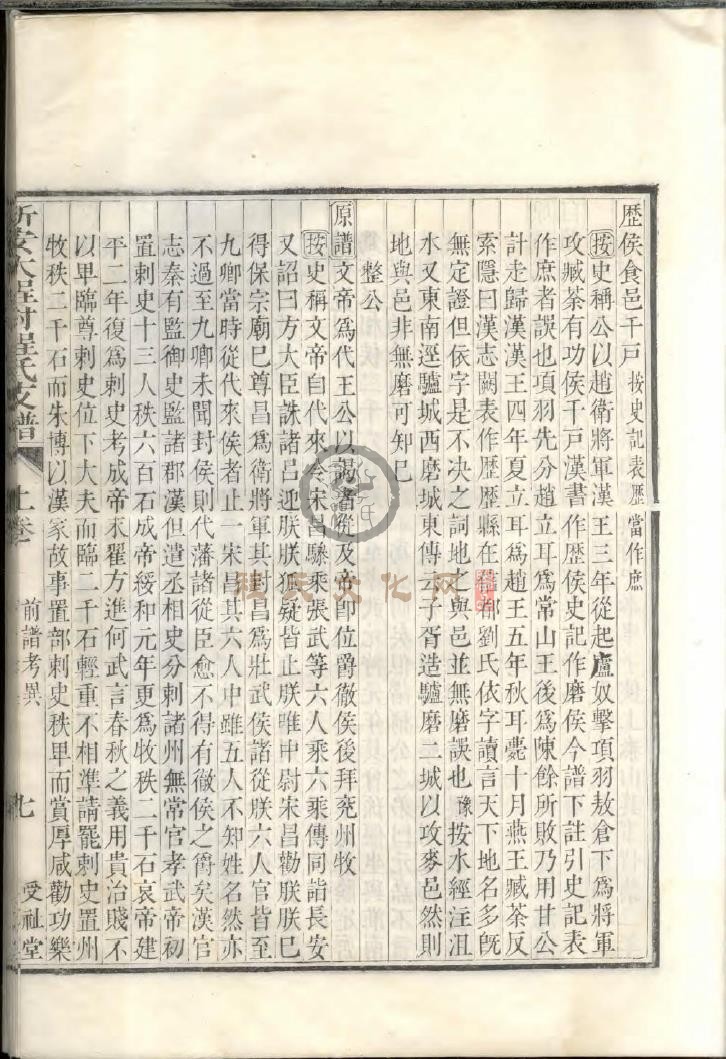 歷侯食邑千戶按史記表歷當作庶
按史稱公以趙衛將軍漢王三年從起盧奴擊項羽敖倉下為將軍
攻臧荼有功侯千戶漢書作歷侯史記作磨侯今譜下註引史記表
作庶者誤也項羽先分趙立耳為常山王後為陳餘所敗乃用甘公
計走歸漢漢王四年夏立耳為趙王五年秋耳薨十月燕王臧荼反
索隱曰漢志闕表作歷歷縣在信都劉氏依字讀言天下地名多既
無定證但依字是不決之詞地之與邑並無磨誤也豫按水經注沮
水又東南逕驢城西磨城東傳云子胥造驢磨二城以攻麥邑然則
地與邑非無磨可知已
整公
原譜文帝為代王公以謁者從及帝卽位爵徹侯後拜兗州牧
按史稱文帝自代來令宋昌驂乘張武等六人乘六乘傳同詣長安
又詔曰方大臣誅諸呂迎朕朕狐疑皆止朕唯中尉宋昌勸朕朕已
得保宗廟已尊昌為衛將軍其封昌為壯武侯諸從朕六人官皆至
九卿當時從代來侯者止一宋昌其六人中雖五人不知姓名然亦
不過至九卿未聞封侯則代藩諸從臣愈不得有徹侯之爵矣漢官
志秦有監御史監諸郡漢但遣丞相史分刺諸州無常官孝武帝初
置刺史十三人秩六百石成帝綏和元年更為牧秩二千石哀帝建
平二年復為刺史考成帝末翟方進何武言春秋之義用貴治賤不
以卑臨尊刺史位下大夫而臨二千石輕重不相準請罷刺史置州
牧秩二千石而朱博以漢家故事置部刺史秩卑而賞厚咸勸功樂
新安大程村程氏支譜 上卷 前譜考異 七 受祉堂
程氏文化网